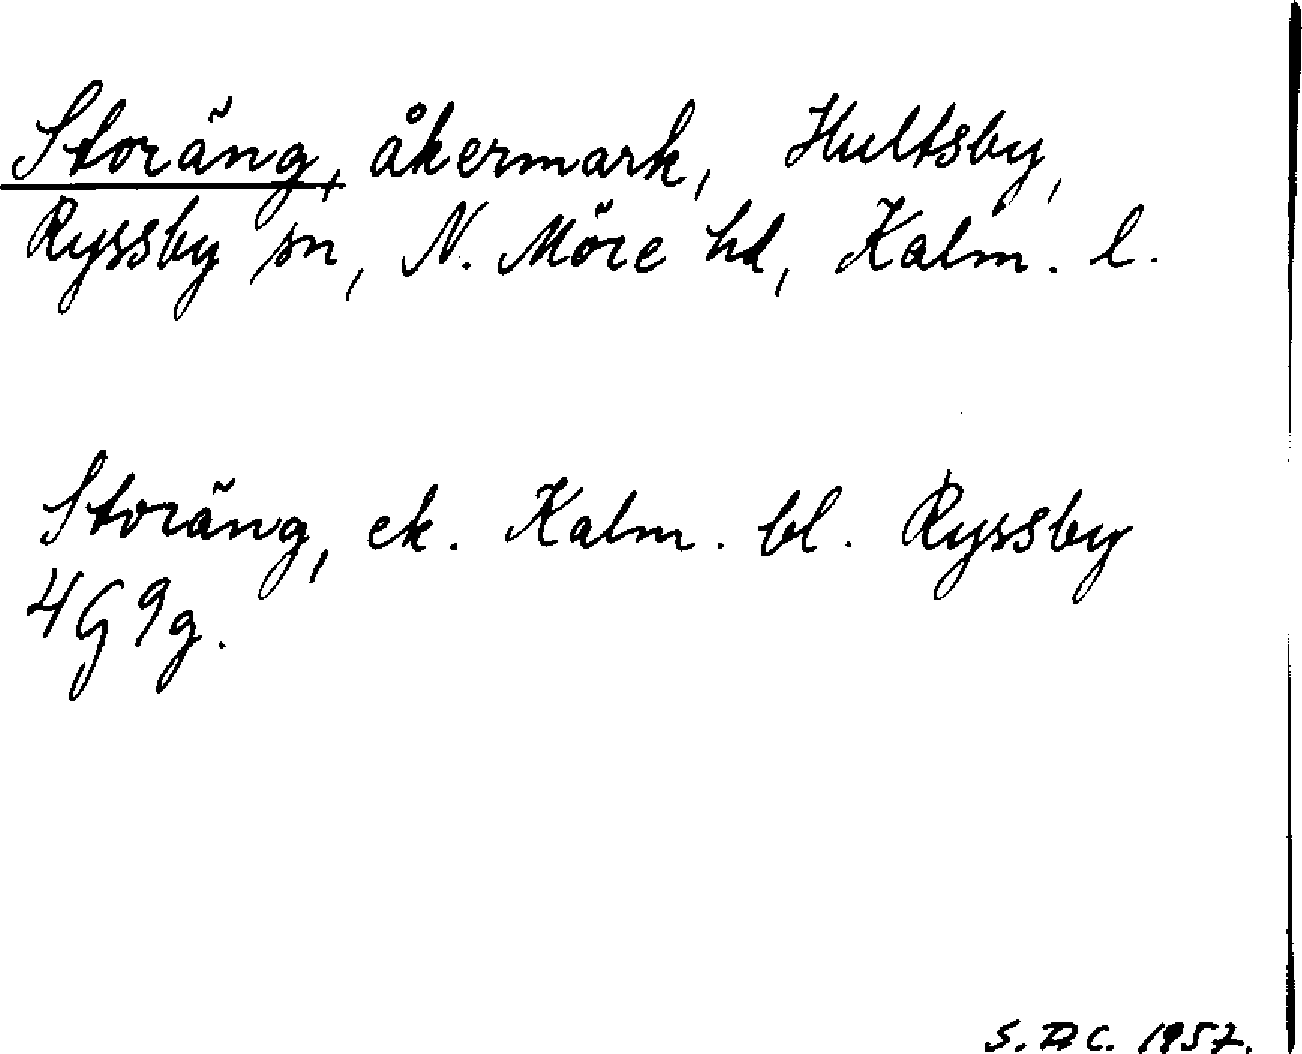 Storäng, åkermark, Hultsby,
Ryssby sn, N. Möre hd, Kalm. l.
Storäng, ek. Kalm. bl. Ryssby
4G 9g.
1957.